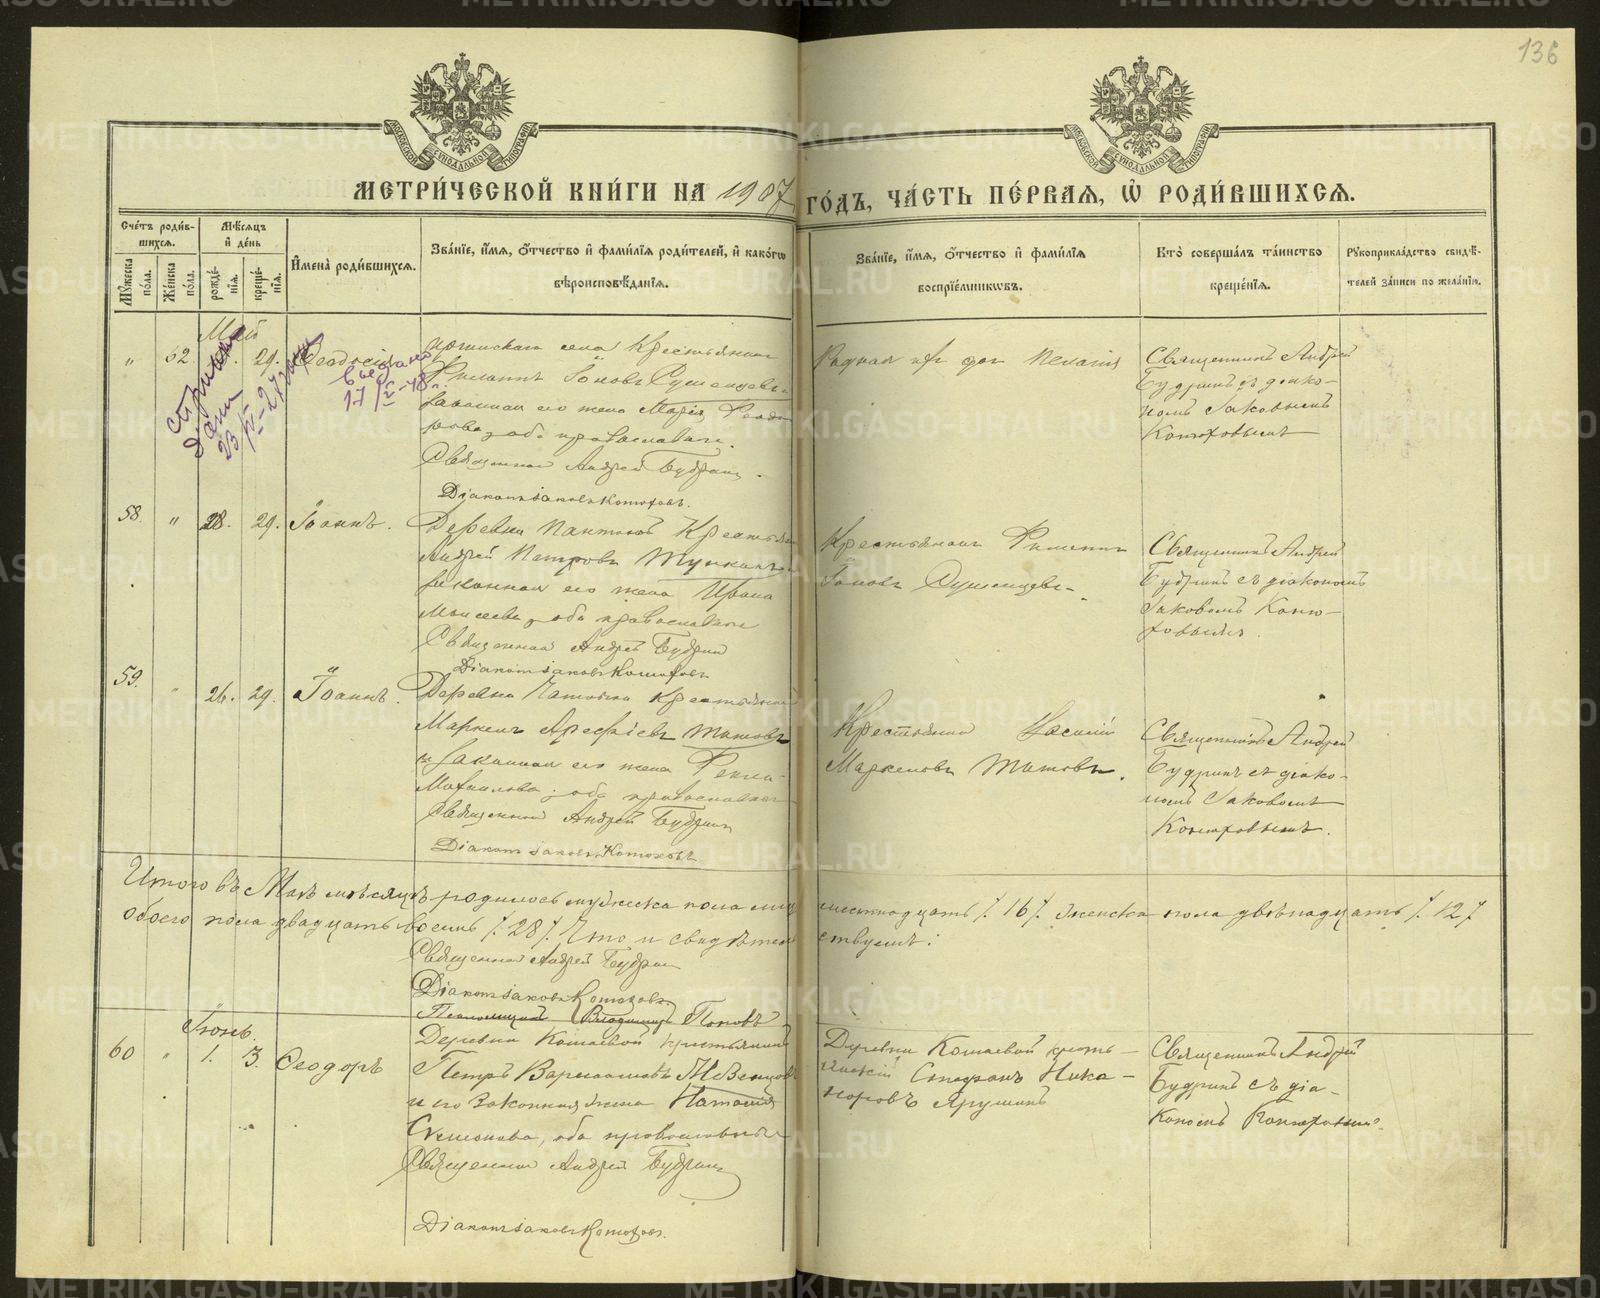 136
МЕТРИ́ЧЕСКОЙ КНИ́ГИ НА 1907 ГО́ДЪ, ЧА́СТЬ ПЕ́РВАЯ, Ѡ РОДИ́ВШИХСЯ.
Сче́тъ роди́вшихся.
Мѣ́сяцъ и де́нь
Му́жеска по́ла.
Же́нска по́ла.
рожде́нїя.
креще́нїя.
И҆мена̀ роди́вшихся.
Зва́нїе, и҆́мя, о҆́тчество и҆ фами́лїя роди́телей, и҆ како́гѡ вѣроисповѣ́данїя.
Зва́нїе, и҆́мя, о҆́тчество и҆ фами́лїя воспрїе́мниковъ.
Кто̀ соверша́лъ та́инство креще́нїя.
Рꙋкоприкла́дство свидѣ́телей за́писи по жела́нїю.
Май
" 52 29. Феодосія
выдано
17/V-48 г.
23/IV-27 года
села Крестьянинъ
Филиппъ Іоновъ Сушенцевъ
законная его жена Марія Феодо-
рова, оба православны.
Священникъ Андрей Будринъ
Діаконъ Іаковъ Конюховъ.
Родная дочь Пелагія
Священникъ Андрей
Будринъ съ діако-
номъ Іаковымъ
Конюховымъ
58. " 28. 29. Іоаннъ.
Деревни Крестьянинъ
Андрей Петровъ
законная его жена Ирина
Моисеева, оба православны
Священникъ Андрей Будринъ
Діаконъ Іаковъ Конюховъ
Крестьянинъ Филиппъ
Іоновъ Сушенцевъ.
Священникъ Андрей
Будринъ съ діакономъ
Іаковомъ Коню-
ховымъ.
59. " 26. 29. Іоаннъ.
Деревни Крестьянинъ
Маркелъ Арефіевъ Татовъ
и законная его жена Фекла
Михаилова, оба православны
Священникъ Андрей Будринъ
Діаконъ Іаковъ Конюховъ
Крестьянинъ Василій
Маркеловъ Татовъ.
Священникъ Андрей
Будринъ съ діако-
номъ Іаковомъ
Конюховымъ.
Итого въ Маѣ мѣсяцѣ родилось мужеска пола шестнадцать /16/ женска пола двѣнадцать /12/
обоего пола двадцать восемь /28/. Что и свидѣтельствуемъ:
Священникъ Андрей Будринъ
Діаконъ Іаковъ Конюховъ
Псаломщикъ Владимиръ Поповъ
Іюнь.
60 " 1. 3. Феодоръ
Деревни Кошаевой крестьянинъ
Петръ Варлаамовъ
и его законная жена Наталія
Симонова, оба православны
Священникъ Андрей Будринъ
Діаконъ Іаковъ Конюховъ.
Деревни Кошаевой кресть-
янскій Стефанъ Ника-
норовъ Ярушинъ
Священникъ Андрей
Будринъ съ діа-
кономъ Конюховымъ.
METRIKI.GASO-URAL.RU